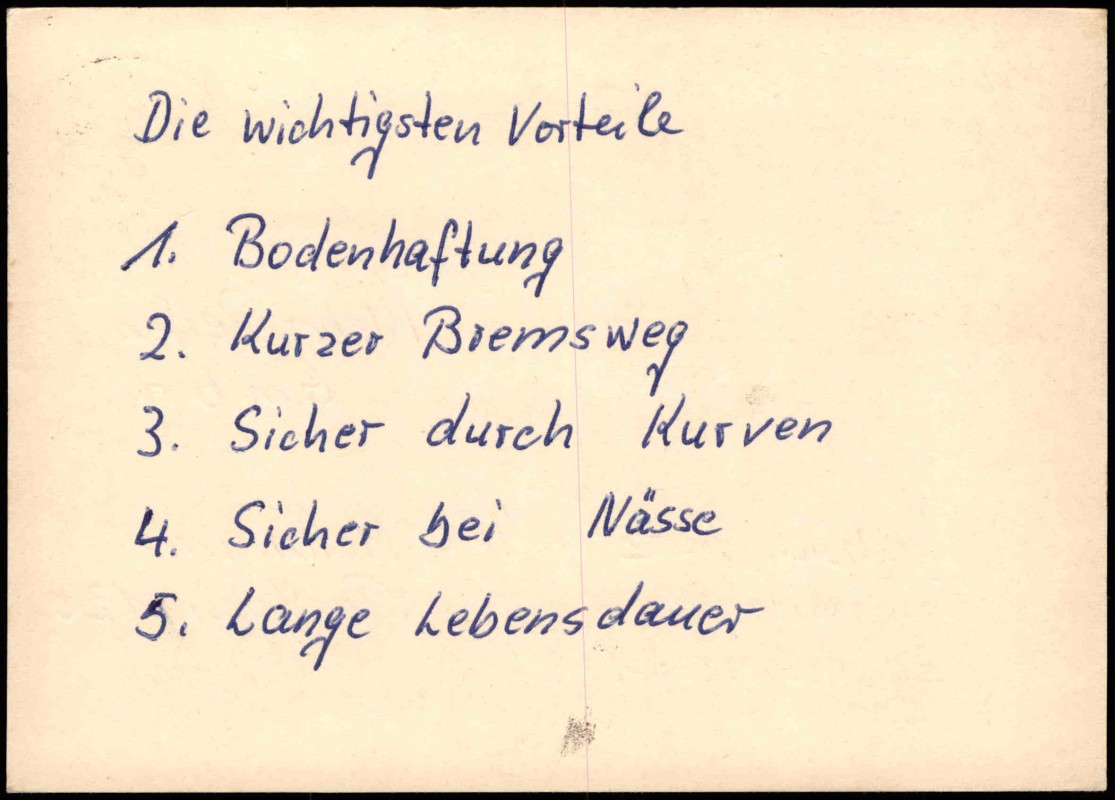 Die wichtigsten Vorteile
1. Bodenhaftung
2. Kurzer Bremsweg
3. Sicher durch Kurven
4. Sicher bei Nässe
5. Lange Lebensdauer